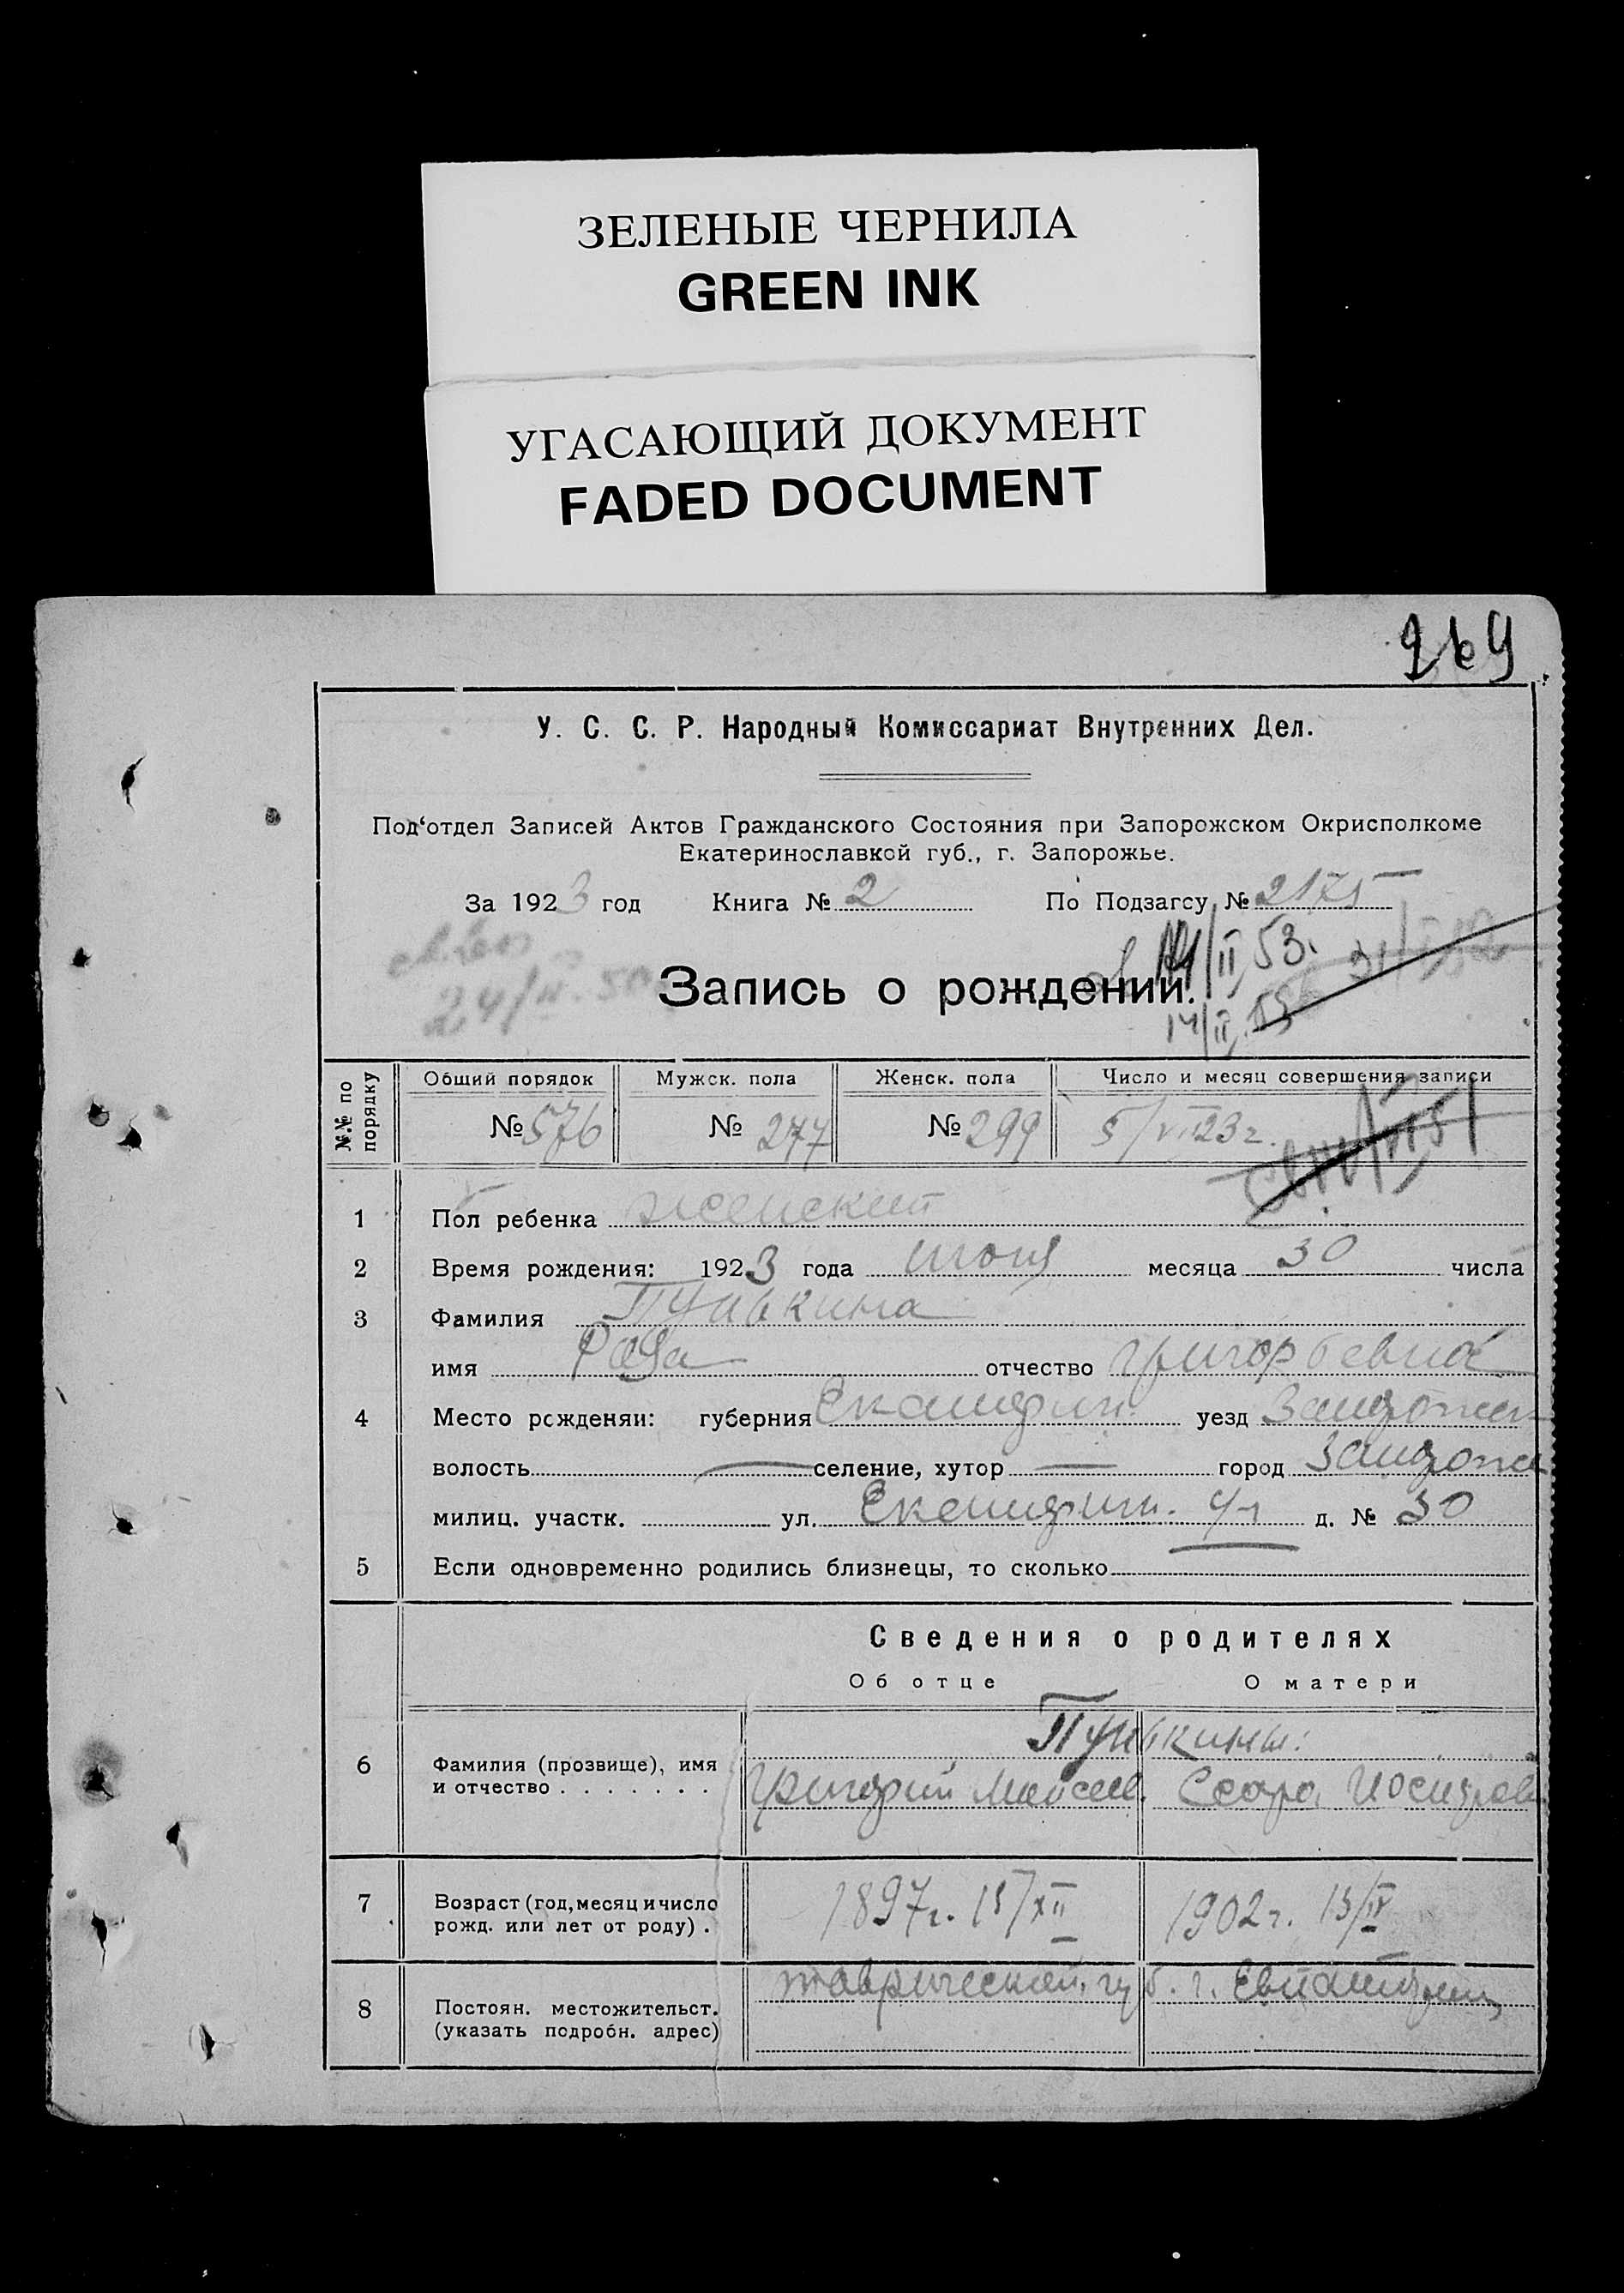 ЗЕЛЕНЫЕ ЧЕРНИЛА
GREEN INK
УГАСАЮЩИЙ ДОКУМЕНТ
FADED DOCUMENT
269
У. С. С. Р. Народный Комиссариат Внутренних Дел.
Под‘отдел Записей Актов Гражданского Состояния при Запорожском Окрисполкоме
Екатеринославкой губ., г. Запорожье.
За 1923 год Книга № 2 По Подзагсу № 2175
24/II.50
14/II 53.
Запись о рождении.
№.№ по порядку
Общий порядок Мужск. пола Женск. пола Число и месяц совершения записи
№ 576 № 277 № 299 5/VII23г.
1 Пол ребенка женский
2 Время рождения: 1923 года июня месяца 30 числа
3 Фамилия Пунькина
имя Роза отчество Григорьевна
4 Место рожденяи: губерния Екатерин. уезд Запорож
волость — селение, хутор — город Запорож
милиц. участк. ул. Екатерин. ул д. № 30
5 Если одновременно родились близнецы, то сколько
Сведения о родителях
Об отце О матери
Пунькины:
6 Фамилия (прозвище), имя
и отчество . . . . . . . Григорий Моисеев. Сарра Иосифов.
7 Возраст (год, месяц и число
рожд. или лет от роду) . 1897г. 15/XII 1902г. 15/IV
Таврической губ. г. Евпатория
8 Постоян. местожительст.
(указать подробн. адрес)